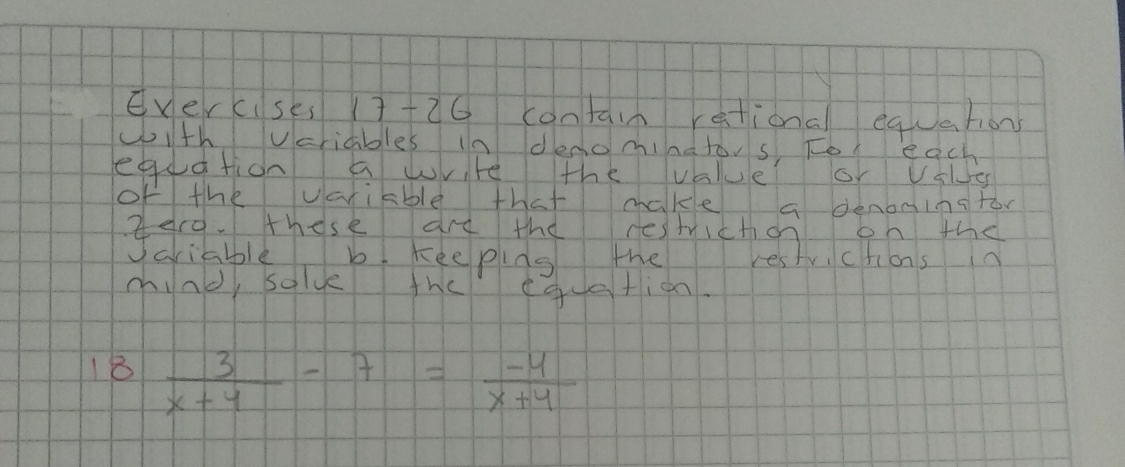 Exercises 17-26 contain rational equations
with variables in denominators, For each
equation a write the value or values
of the variable that make a denominator
zero. these are the restriction on the
variable b. keeping the restrictions in
mind, solve the equation.
18 3/(x+4) - 7 = -4/(x+4)